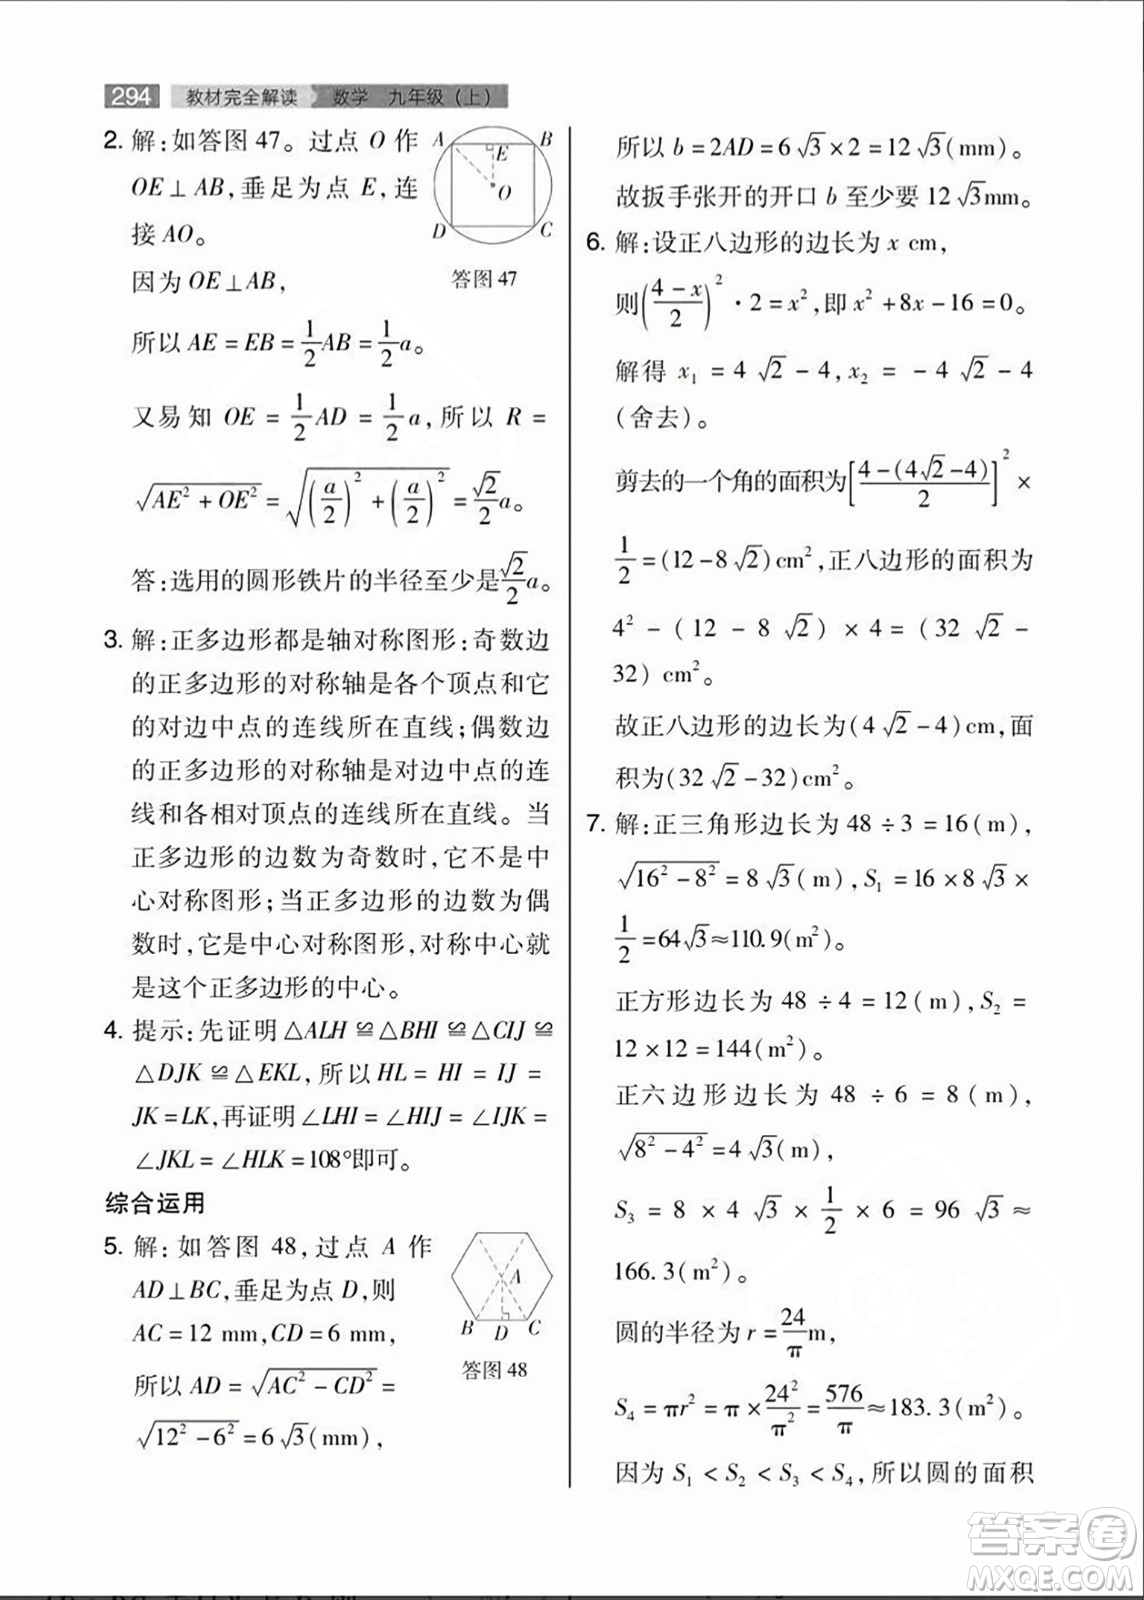 294 教材完全解读 数学 九年级(上)
2. 解:如答图 47。过点 O 作
OE⊥AB,垂足为点 E,连
接 AO。
因为 OE⊥AB,
A B E O D C
答图 47
所以 AE=EB=1/2AB=1/2a。
又易知 OE=1/2AD=1/2a,所以 R=
√(AE²+OE²)=√((a/2)²+(a/2)²)=√2/2a。
答:选用的圆形铁片的半径至少是√2/2a。
3. 解:正多边形都是轴对称图形:奇数边
的正多边形的对称轴是各个顶点和它
的对边中点的连线所在直线;偶数边
的正多边形的对称轴是对边中点的连
线和各相对顶点的连线所在直线。当
正多边形的边数为奇数时,它不是中
心对称图形;当正多边形的边数为偶
数时,它是中心对称图形,对称中心就
是这个正多边形的中心。
4. 提示:先证明△ALH≌△BHI≌△CIJ≌
△DJK≌△EKL,所以HL=HI=IJ=
JK=LK,再证明∠LHI=∠HIJ=∠IJK=
∠JKL=∠HLK=108°即可。
综合运用
5. 解:如答图 48,过点 A 作
AD⊥BC,垂足为点 D,则
AC=12 mm,CD=6 mm,
A B D C
答图 48
所以 AD=√(AC²-CD²)=
√(12²-6²)=6√3(mm),
所以 b=2AD=6√3×2=12√3(mm)。
故扳手张开的开口 b 至少要 12√3mm。
6. 解:设正八边形的边长为 x cm,
则((4-x)/2)²·2=x²,即 x²+8x-16=0。
解得 x₁=4√2-4,x₂=-4√2-4
(舍去)。
剪去的一个角的面积为[(4-(4√2-4))/2]²×
1/2=(12-8√2)cm²,正八边形的面积为
4²-(12-8√2)×4=(32√2-
32)cm²。
故正八边形的边长为(4√2-4)cm,面
积为(32√2-32)cm²。
7. 解:正三角形边长为 48÷3=16(m),
√(16²-8²)=8√3(m),S₁=16×8√3×
1/2=64√3≈110.9(m²)。
正方形边长为 48÷4=12(m),S₂=
12×12=144(m²)。
正六边形边长为 48÷6=8(m),
√(8²-4²)=4√3(m),
S₃=8×4√3×1/2×6=96√3≈
166.3(m²)。
圆的半径为 r=24/π m,
S₄=πr²=π×24²/π²=576/π≈183.3(m²)。
因为 S₁<S₂<S₃<S₄,所以圆的面积
答案圈
MXQE.COM